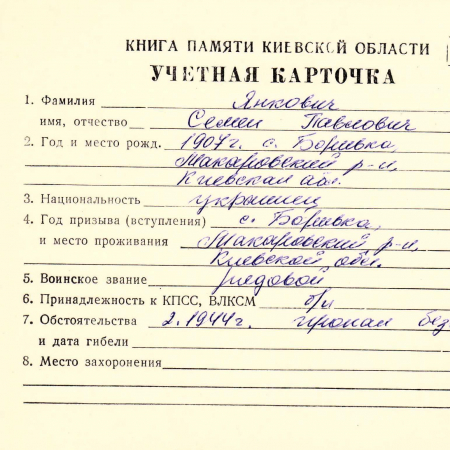 КНИГА ПАМЯТИ КИЕВСКОЙ ОБЛАСТИ
УЧЕТНАЯ КАРТОЧКА
1. Фамилия Янкович
имя, отчество Семен Павлович
2. Год и место рожд. 1907г. с. Боривка,
Макаровский р-н,
Киевская обл.
3. Национальность украинец
4. Год призыва (вступления) с. Боривка,
и место проживания Макаровский р-н,
Киевской обл.
5. Воинское звание рядовой
6. Принадлежность к КПСС, ВЛКСМ б/п
7. Обстоятельства 2.1944г. пропал без
и дата гибели
8. Место захоронения